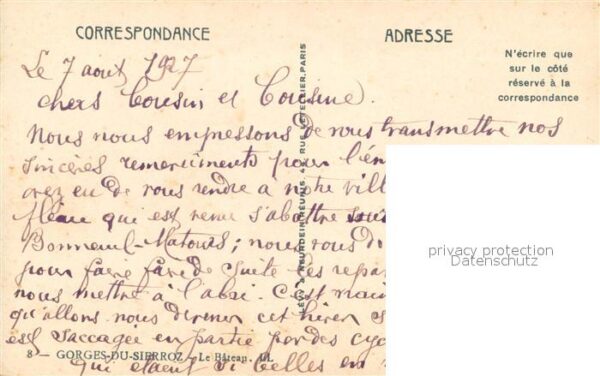 CORRESPONDANCE
ADRESSE
N'écrire que
sur le côté
réservé à la
correspondance
Le 7 août 1927
Chers Cousin et Cousine.
Nous nous empressons de vous transmettre nos
sincères remerciements pour l'en
avez eu de vous rendre a notre vill
fléau qui est venu s'abattre
Bonneuil-Matours; nous vous
pour faire faire de suite les repar
nous mettre à l'abri. C'est
qu'allons nous devenir cet hiver
est saccagée en partie par des cyc
qui étaient si belles en
8 - GORGES-DU-SIERROZ - Le Bâteau. LL
LÉVY & NEURDEIN RÉUNIS, 44, RUE LETELLIER, PARIS
privacy protection
Datenschutz